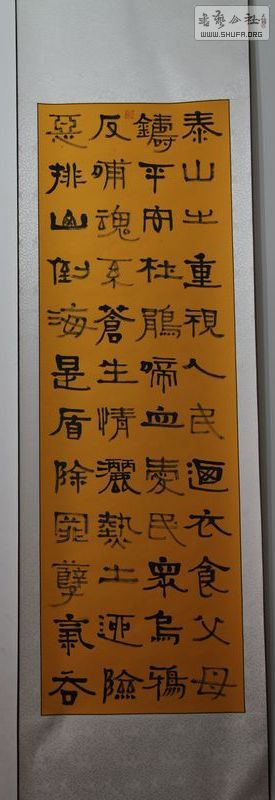 泰山之重視人民迴衣食父母
鑄平安杜鵑啼血愛民眾烏鴉
反哺魂系蒼生情灑熱土迎險
惡排山倒海是盾除罪孽氣吞
書藝公社
WWW.SHUFA.ORG